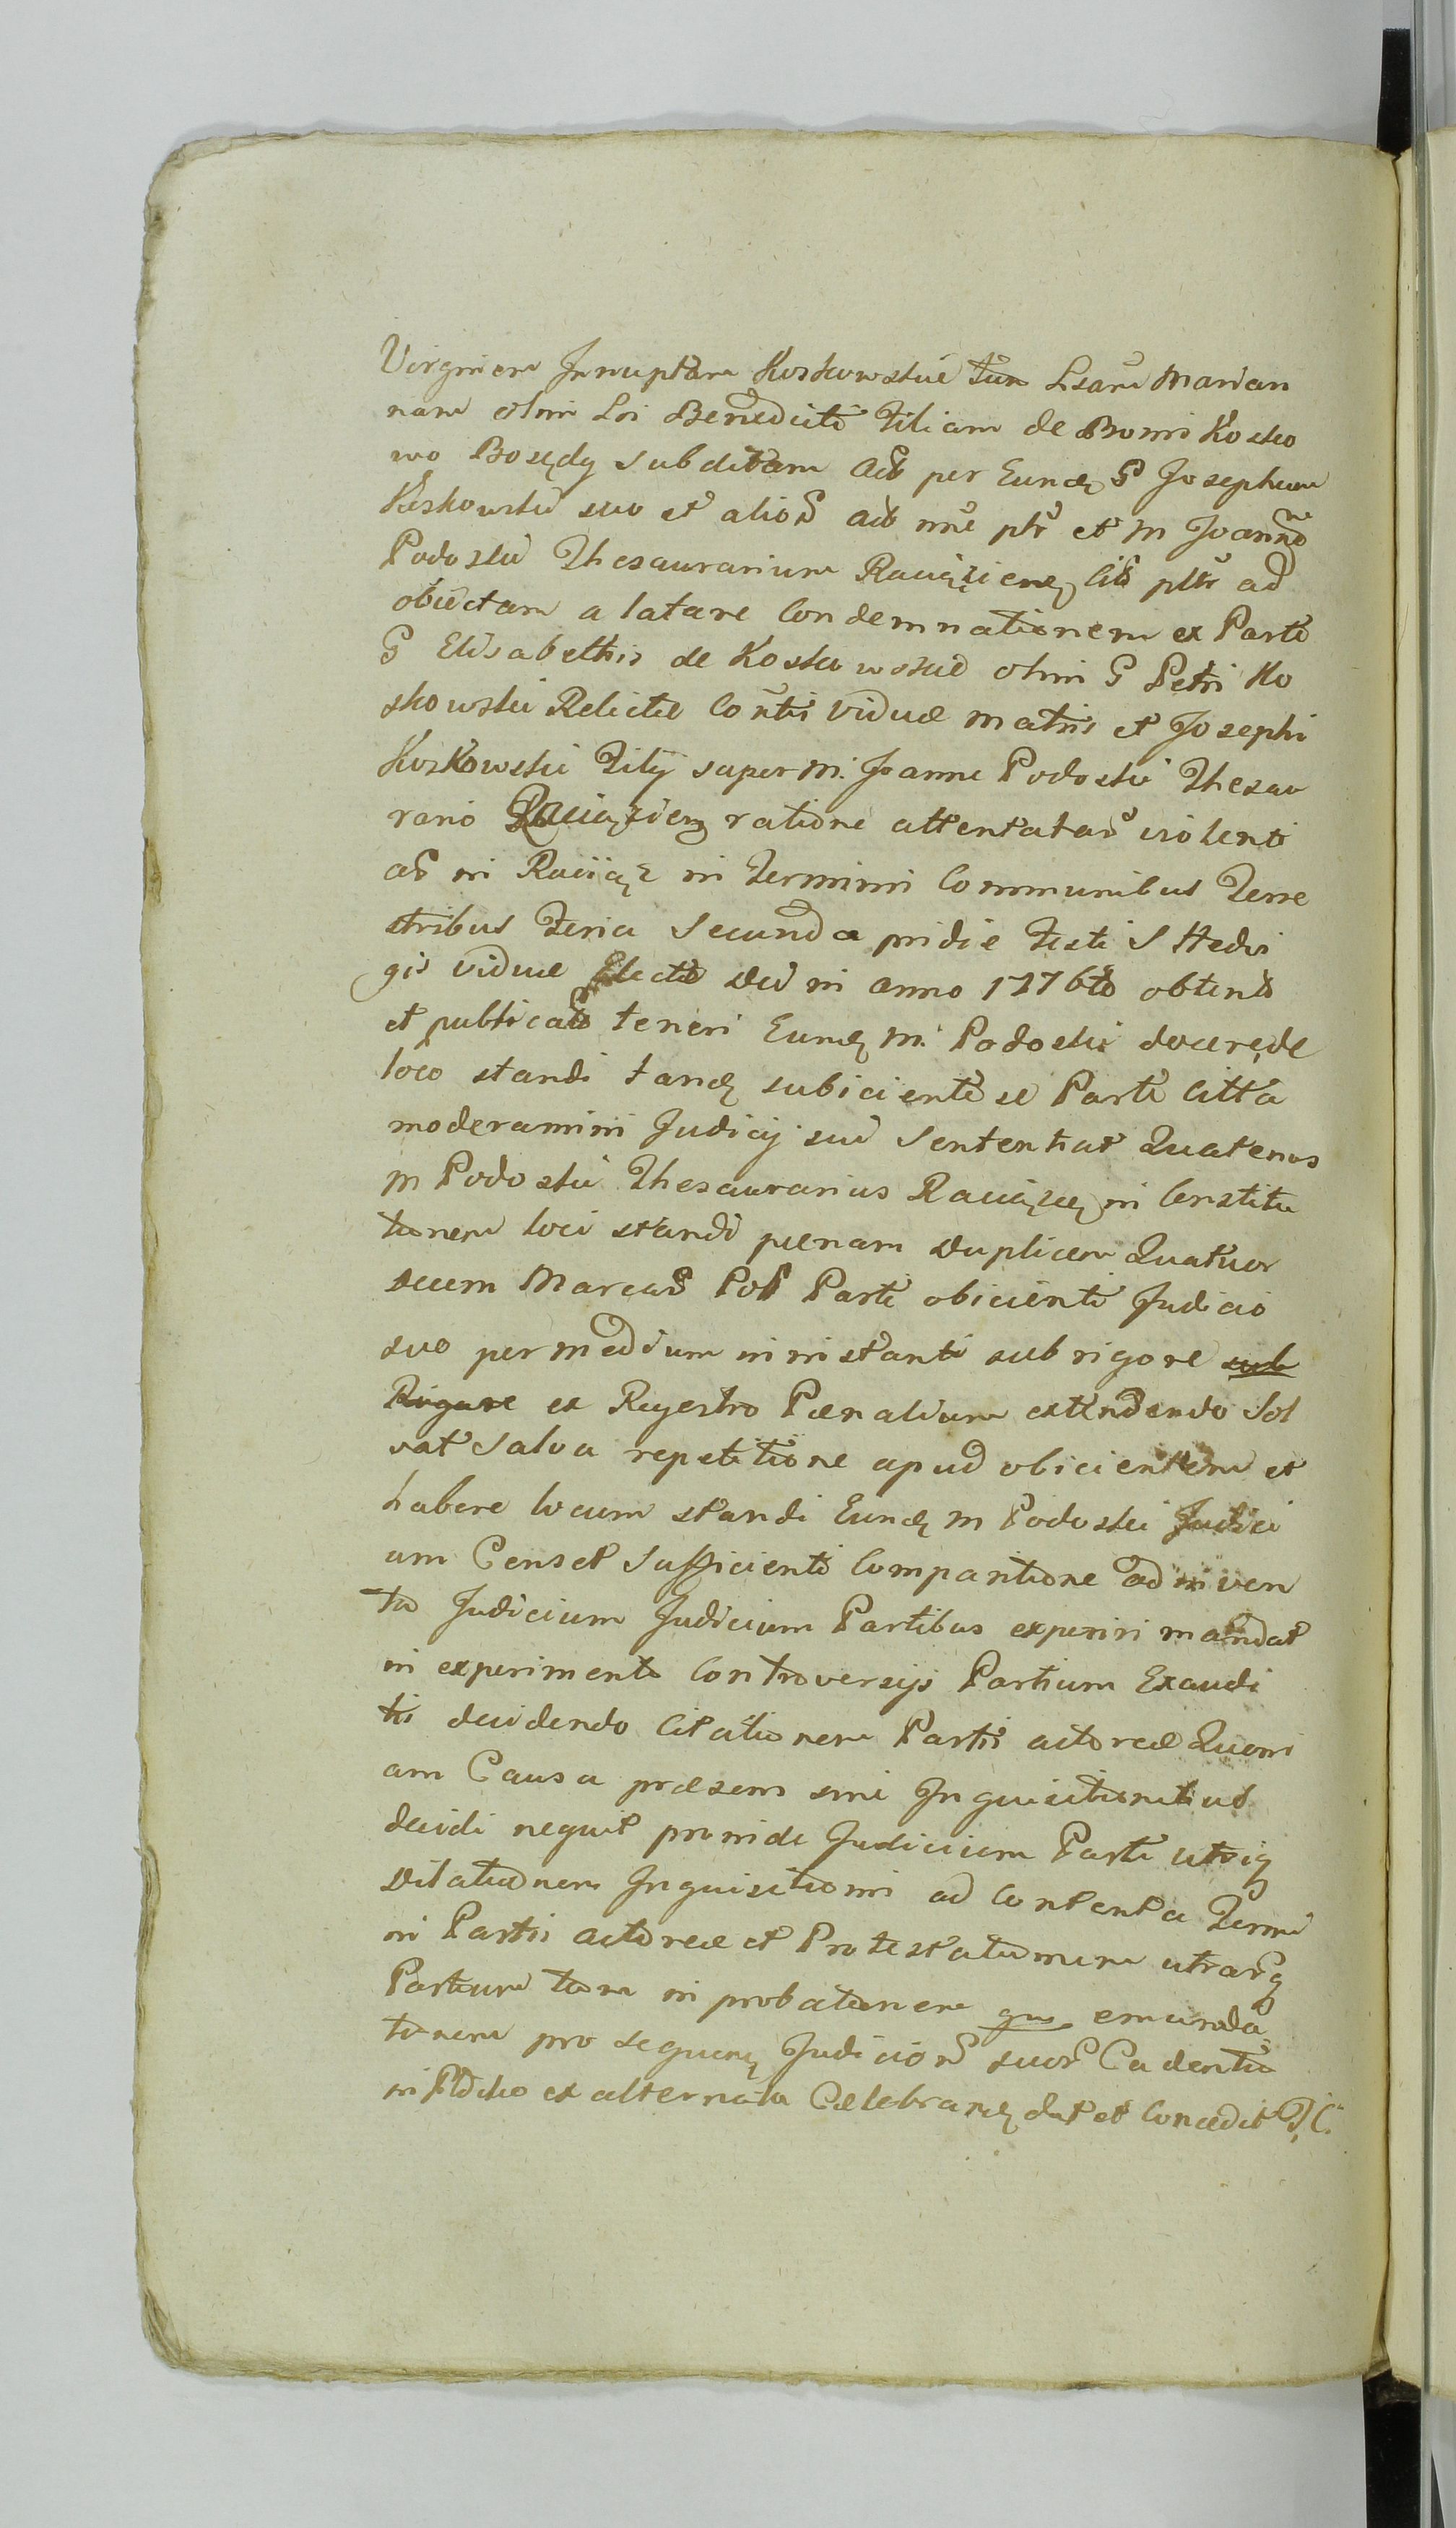 Virginem Innuptam Koskowskie tum Lsam Marian
nam olim Lri Benedicti Filiam de Bonis Kosko
wo Bozędy subditam act per Eund G Josephum
Koskowski suo et alior act nne ptr et M Joannem
Podoski Thesaurarium Raciązieng Citt pttr ad
obiectam a latare Condemnationem ex Parte
G Elisabethis de Koskowskie olim G Petri Ko
skowski Relictae Contis viduae matris et Josephi
Koskowski Filij super M. Joanne Podoski Thesau
rario Raciązieng ratione attentatar violenti
ar in Raciąz in Terminis Communibus Terre
stribus Feria Secunda pridie Festi S Hedvi
gis viduae Electae Dei in anno 1776to obtent
et publicato teneri Eund M. Podoski docere de
loco standi tand subiciente se Parte Citta
moderamini Judicij sui Sententiat Quatenus
M Podoski Thesaurarius Raciąze in Constitu
tionem loci standi paenam duplicem Quatuor
decem Marcar Pol Parti obicienti Judicio
suo per medium in instanti sub rigore sub
Rigore ex Regestro Paenalium extendendo Sol
vat Salva repetitione apud obicientem et
habere locum standi Eund M Podoski Judici
um Censet Sufficienti Comparitione ad inven
ta Judicium Judicium Partibus experiri mandat
in experimento Controversijs Partium Exaudi
tis decidendo Citationem Partis actoreae Quoni
am Causa praesens sine Inquisitionibus
decidi nequit proinde Judicium Parti utriq
Dilationem Inquisitionis ad Contenta Termi
ni Partis actoreae et Protestationum utrarq
Partium tam in probationem qu emunda
tionem pro sequen Judicior suor Cadentia
in Plocko ex alternata Caelebrand dat et Concedit D, C.